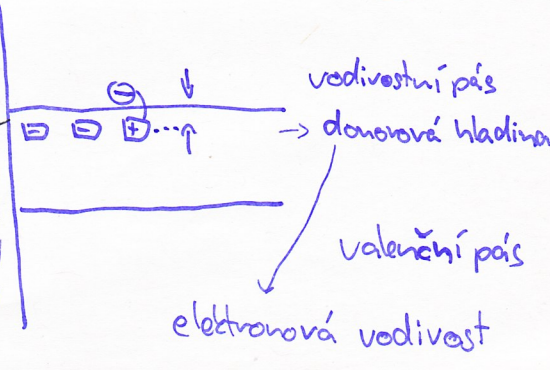 vodivostní pás
donorová hladina
valenční pás
elektronová vodivost